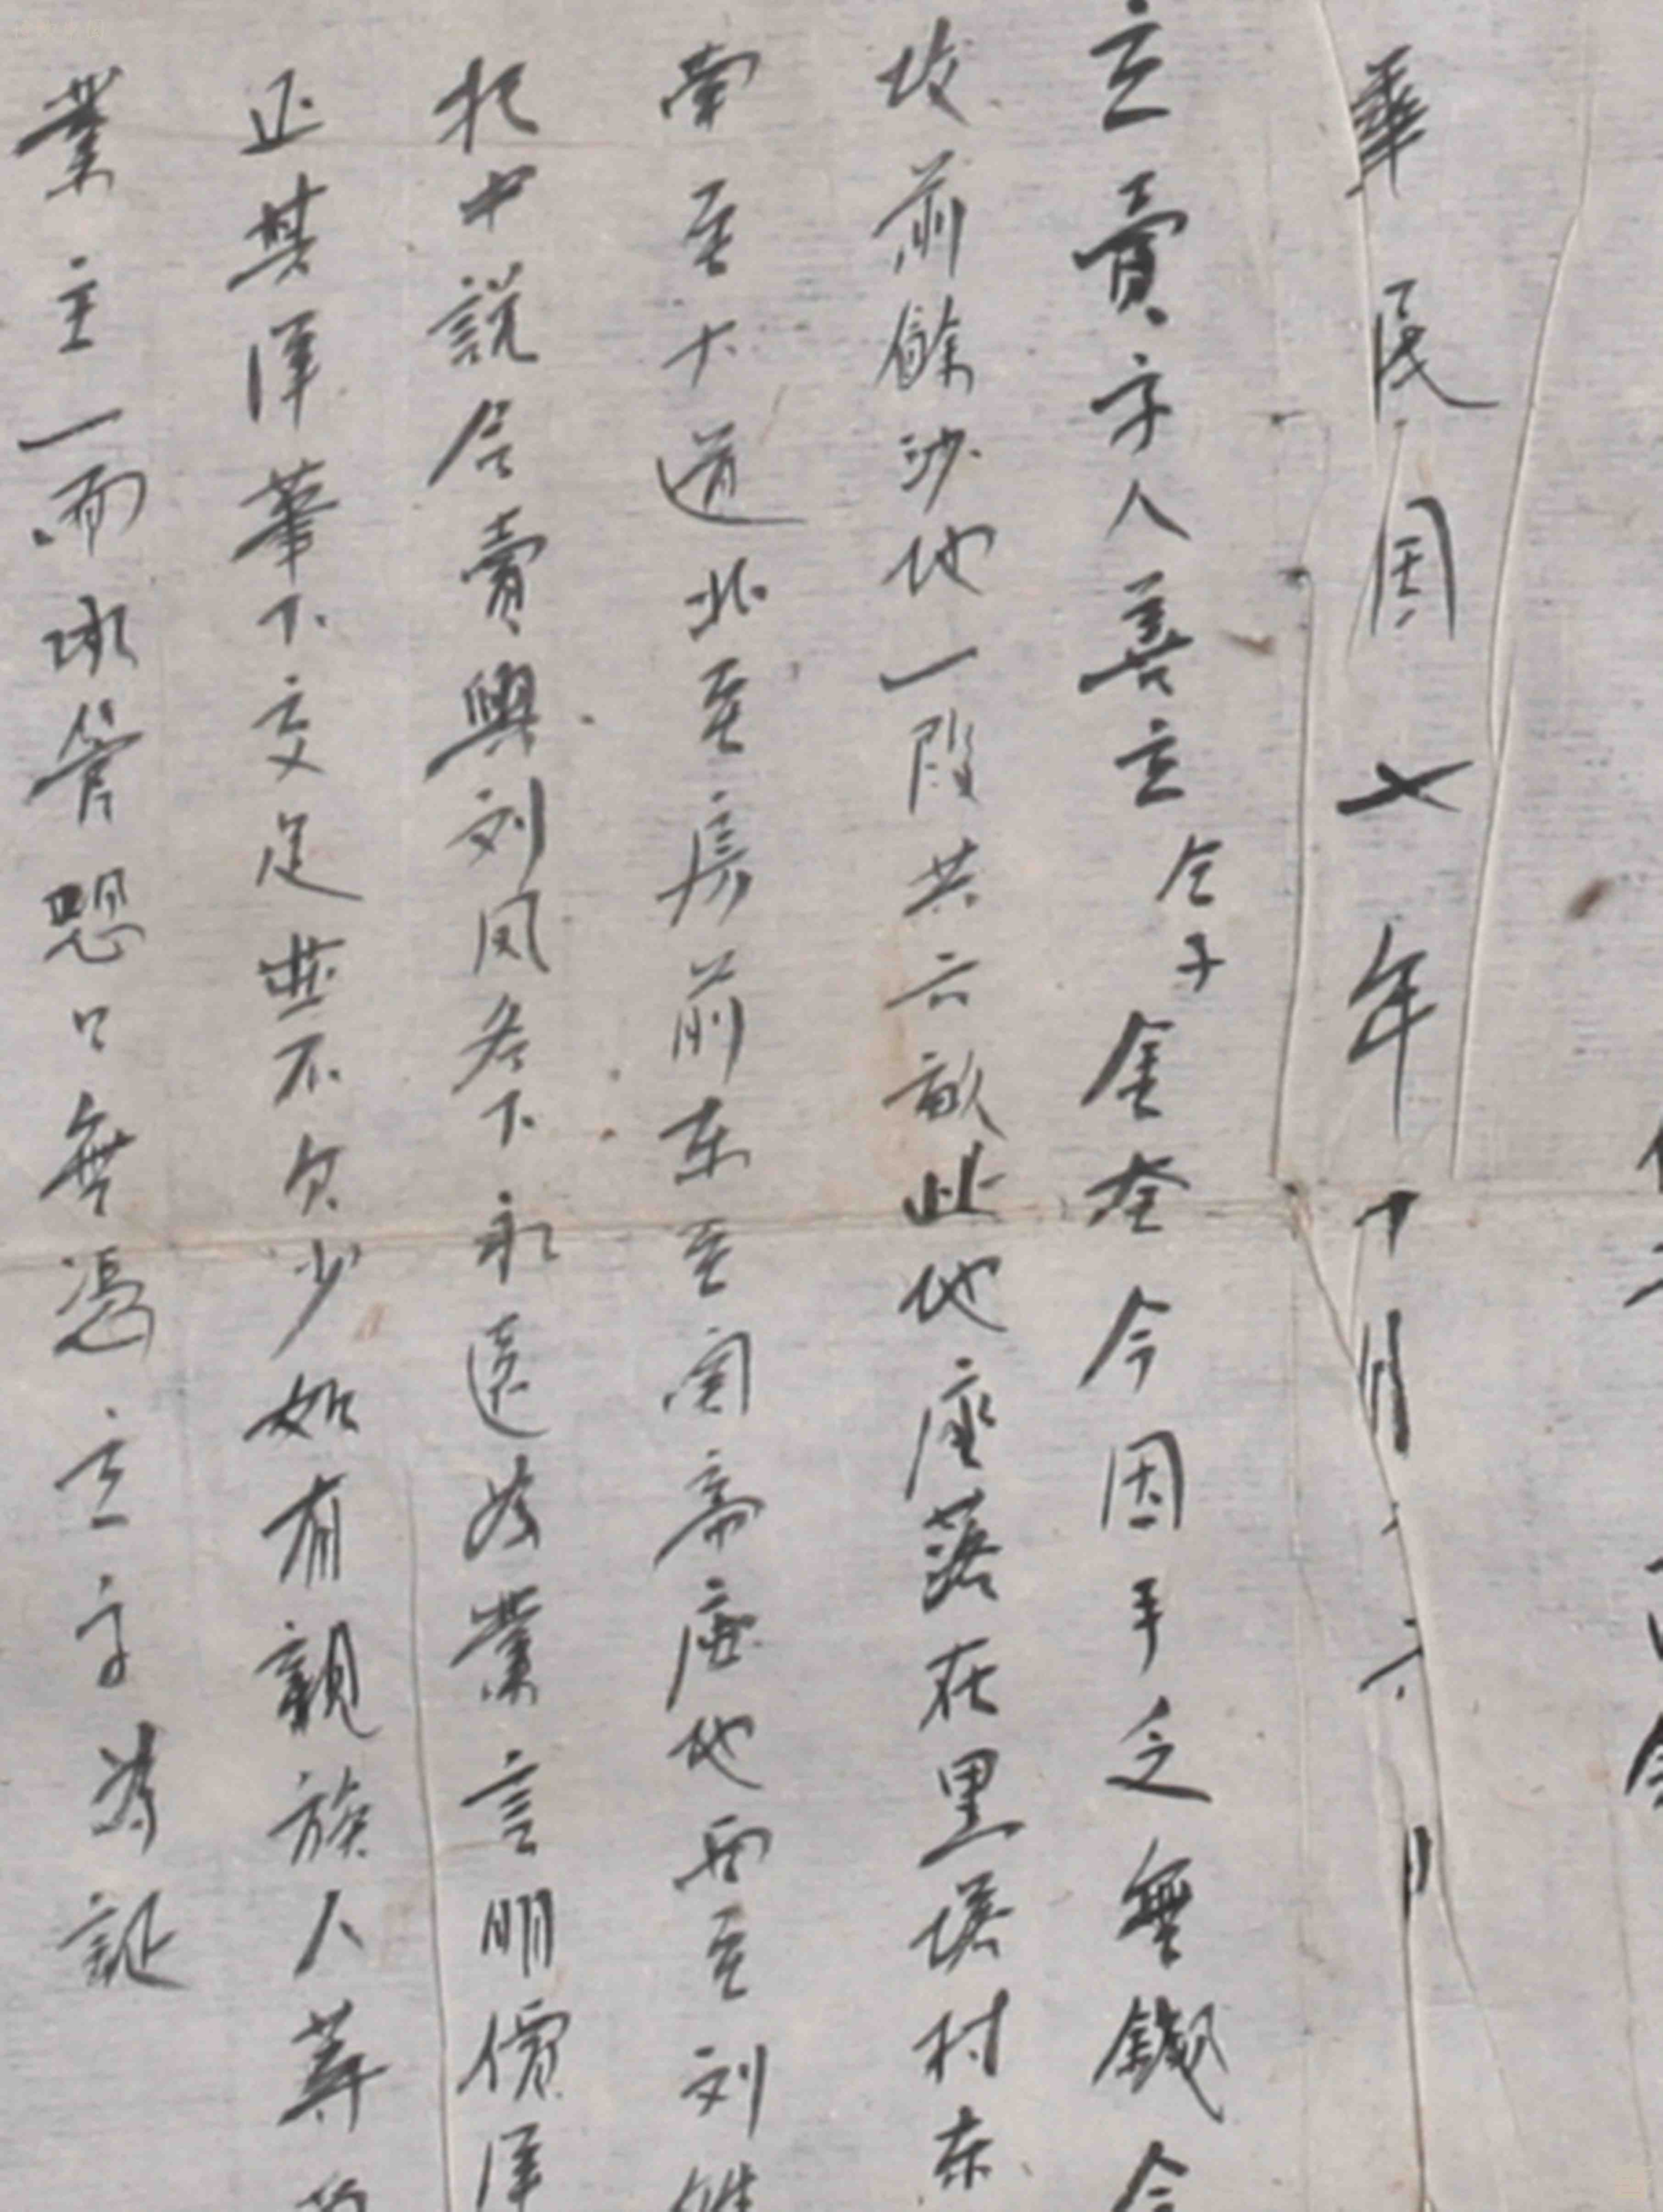 華民囯七年十月六日
立賣字人善立仝子金奎今因手乏無錢今
坟前餘沙地一段共六畝此地座落在里村东
南至大道北至房前东至関帝庙地西至刘
托中説合賣與刘凤名下永遠为業言明價洋
正其洋筆下交足並不欠少如有親族人等
業主一面承管恐口無憑立字為証